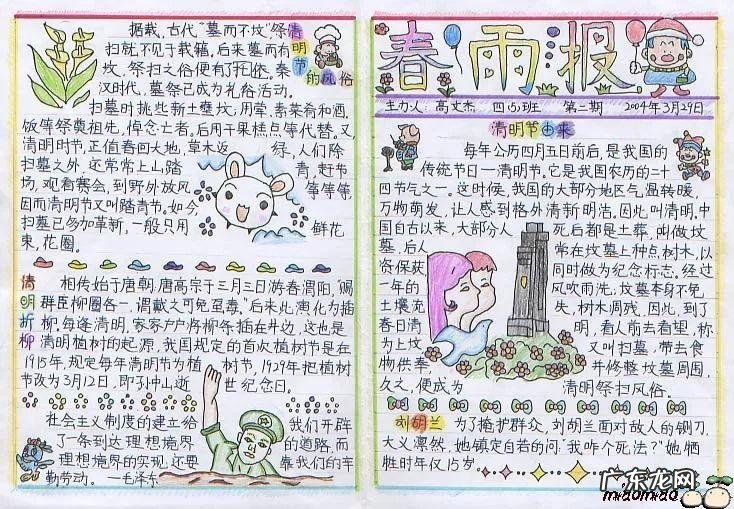 据载,古代"墓而不坟",祭
扫就不见于载籍,后来墓而有
坟,祭扫之俗便有了托依,秦
汉时代,墓祭已成为礼俗活动。
清明节的风俗
扫墓时挑些新土壅坟,用荤、素菜肴和酒、
饭等祭奠祖先,悼念亡者。后用干果糕点等代替。又,
清明时节,正值春回大地,草木返绿,人们除
扫墓之外,还常常上山踏青,赶节
场,观看赛会,到野外放风筝等等,
因而清明节又叫踏青节。如今,
扫墓已多加革新,一般只用鲜花
束,花圈。
清明折柳
相传始于唐朝,唐高宗于三月三日游春渭阳,"赐
群臣柳圈各一,谓戴之可免虿毒。"后来此演化为插
柳,每逢清明,家家户户将柳条插在井边,这也是
清明植树的起源,我国规定的首次植树节是在
1915年,规定每年清明节为植树节,1929年把植树
节改为3月12日,即孙中山逝世纪念日。
社会主义制度的建立给我们开辟
了一条到达理想境界的道路,而
理想境界的实现,还要靠我们的辛
勤劳动。—毛泽东
春雨报
主办人:高文杰 四(5)班 第二期 2009年3月29日
清明节由来
每年公历四月五日前后,是我国的
传统节日—清明节。它是我国农历的二十
四节气之一。这时候,我国的大部分地区气温转暖,
万物萌发,让人感到格外清新明洁。因此叫清明。中
国自古以来,大部分人死后都是土葬,叫做坟
墓,后人常在坟墓上种点树木,以
资保获同时做为纪念标志。经过
一年的风吹雨洗,坟墓本身不免
土壤流失,树木凋残,因此,到了
春日清明,看人前去看望,称
为上坟又叫扫墓,带去食
物供奉,并修整坟墓周围,
久之,便成为清明祭扫风俗。
刘胡兰
为了掩护群众,刘胡兰面对敌人的铡刀,
大义凛然,她镇定自若的问:"我咋个死法?"她牺
牲时年仅15岁
广东龙网
miaomiao